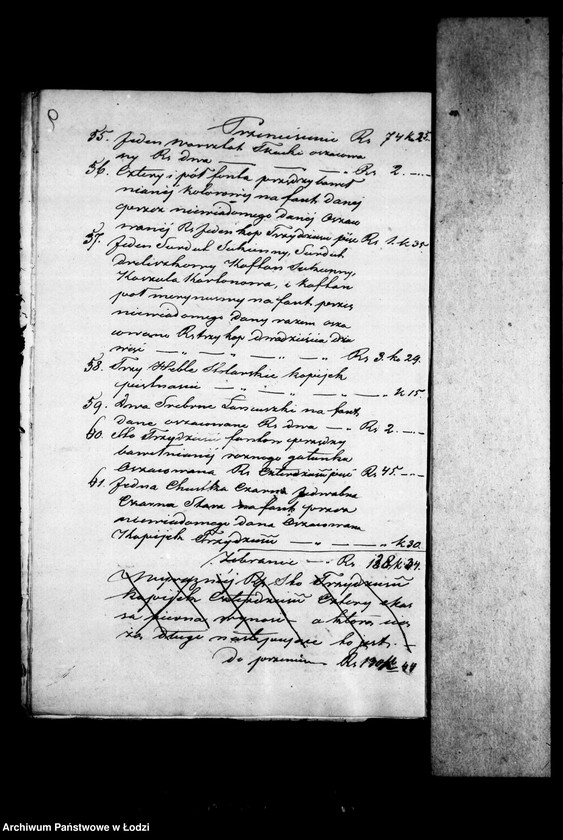 Przeniesienie Rs 74 k 25.
55. Jeden warsztat Tkacki oszacowa
ny Rs dwa — — — " Rs 2. — " —
56. Cztery i pół funta przędzy baweł
nianej kolorowej na fant danej
przez niewiadomego danej Osza
wanej Rs Jeden kop Trzydzieści pięć Rs 1. k 35.
57. Jeden Surdut Sukienny, Surdut
drelichowy Kaftan Sukienny,
Koszula Kortonowa, i kaftan
pół merynusowy na fant przez
niewiadomego dany razem osza
cowane Rs trzy kop dwadzieścia dzie
więć — " — " — " — " — Rs 3. ko 29.
58. Trzy Heble Stolarskie kopiejek
piętnaście — " — " — " — k 15.
59. dwa Srebrne Łańcuszki na fant
dane oszacowane Rs dwa — " Rs 2. — " —
60. Sto Trzydzieści funtów przędzy
bawełnianej roznego gatunku
Oszacowana Rs Czterdzieści pięć Rs 45. — " —
61. Jedna Chustka Czarna Jedwabna
Czarna Stara na fant przez
niewiadomego dana Oszacowana
Kopiejek Trzydzieści — " — " — " k 30.
Zebranie — " Rs
Rs Sto Trzydzieści
kopiejek Czterdzieści Cztery
summa wynosi a która
długi następujące to jest. —
do przenie Rs
Archiwum Państwowe w Łodzi